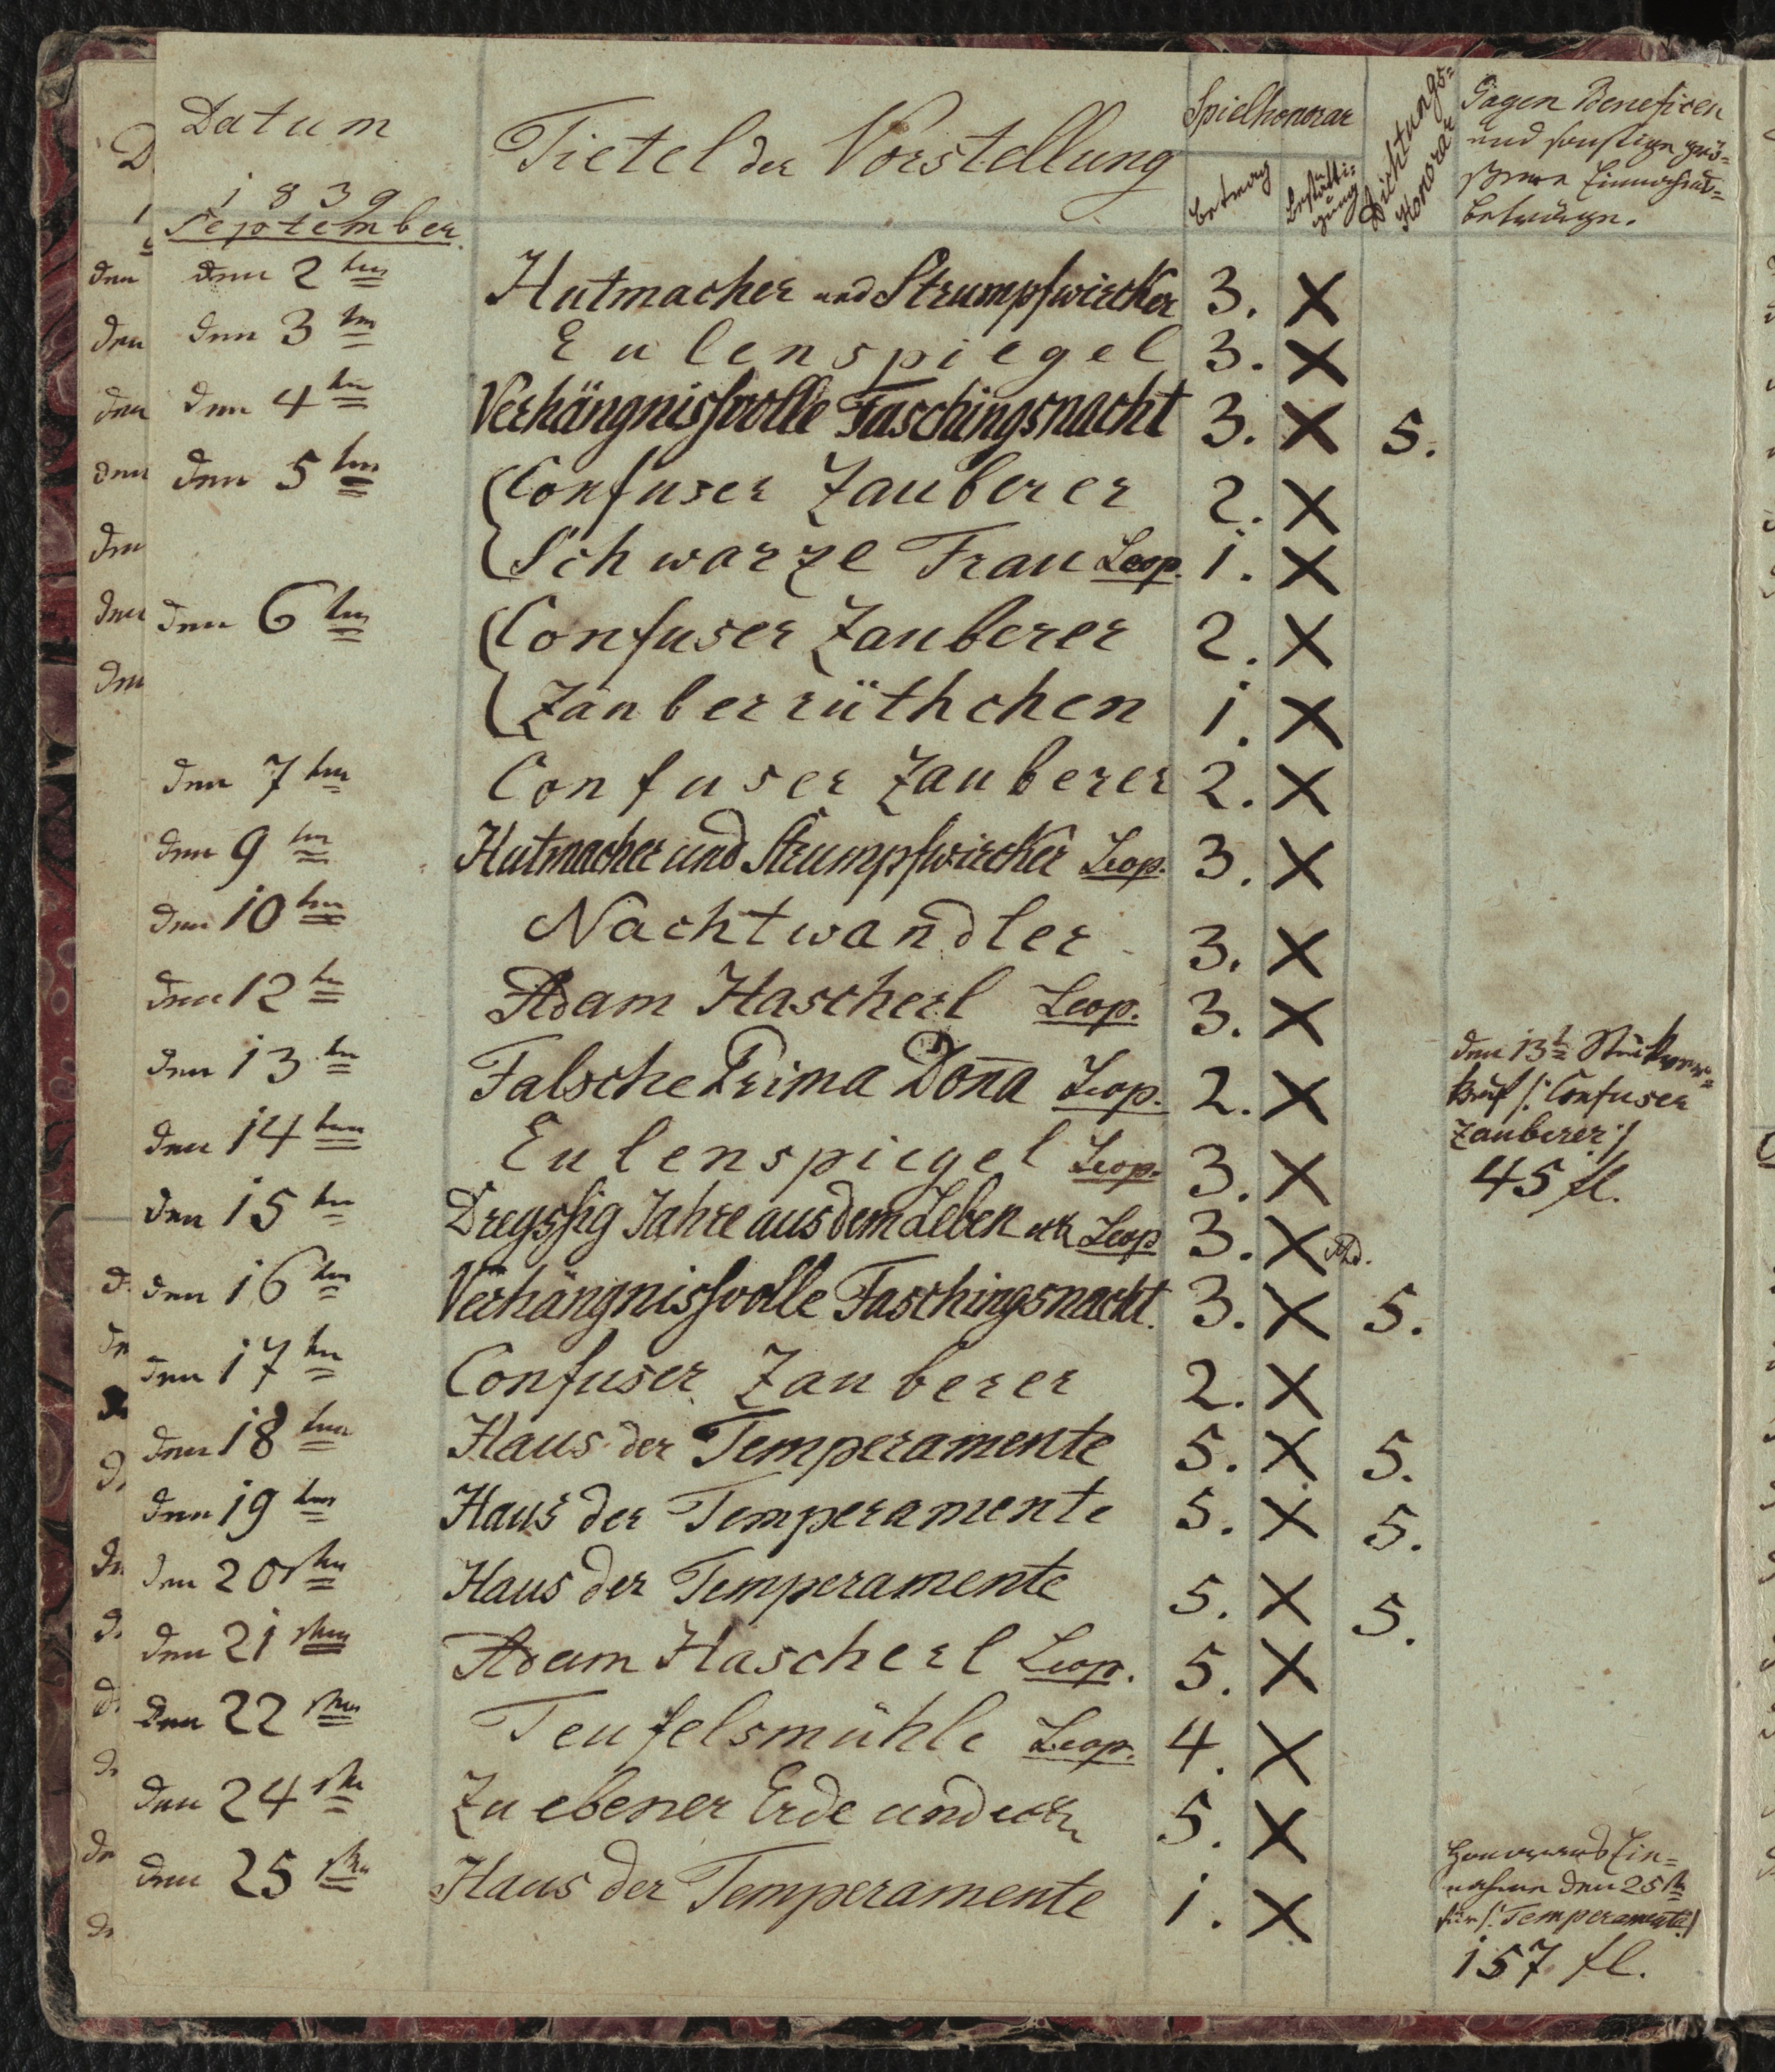 Datum
1839
September
Tietel der Vorstellung
Spielhonorar
Betrag
Bestätti=
gung
Dichtungs=
Honorar
Gagen Beneficen
und sonstige grö=
ßere Einnahms=
beträge.
den 2ten Hutmacher und Strumpfwircker 3. X
den 3ten Eulenspiegel 3. X
den 4ten Verhängnißvolle Faschingsnacht 3. X 5.
den 5ten (Confuser Zauberer 2. X
(Schwarze Frau Leop. 1. X
den 6ten (Confuser Zauberer 2. X
(Zauberrüthchen 1. X
den 7ten Confuser Zauberer 2. X
den 9ten Hutmacher und Strumpfwircker Leop. 3. X
den 10ten Nachtwandler 3. X
den 12ten Adam Hascherl Leop. 3. X
den 13ten Falsche Prima Dōna Leop. 2. X
den 13t Stückver=
kauf /: Confuser
Zauberer :/
45 fl.
den 14ten Eulenspiegel Leop. 3. X
den 15ten Dreyssig Jahre aus dem Leben etz Leop 3. X
den 16ten Verhängnißvolle Faschingsnacht. 3. X 5.
den 17ten Confuser Zauberer 2. X
den 18ten Haus der Temperamente 5. X 5.
den 19ten Haus der Temperamente 5. X 5.
den 20sten Haus der Temperamente 5. X 5.
den 21sten Adam Hascherl Leop. 5. X
den 22sten Teufelsmühle Leop. 4. X
den 24sten Zu ebener Erde und etz 5. X
den 25sten Haus der Temperamente 1. X
Ein=
nahme den 25st
für /: Temperamente :/
157 fl.